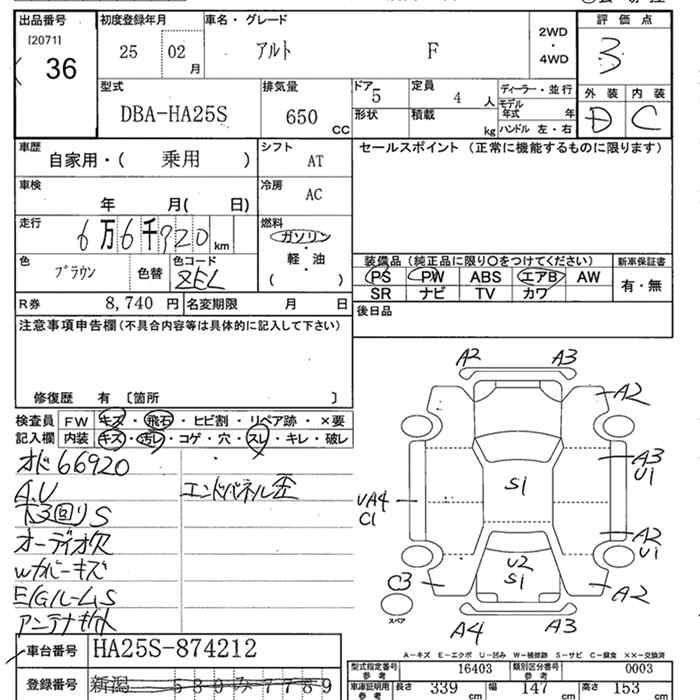 出品番号 初度登録年月 車名・グレード 2WD・4WD 評価点
[2071]
36 25 02月 アルト F 3
型式 排気量 ドア 定員 ディーラー・並行 外装 内装
DBA-HA25S 650 CC 5 4人 モデル年式 年 D C
形状 積載 kg ハンドル 左・右
車歴 自家用・( 乗用 ) シフト AT セールスポイント (正常に機能するものに限ります)
車検 年 月( 日) 冷房 AC
走行 6万6千920km 燃料 ガソリン
軽・油
( )
色 ブラウン 色替 色コード ZEL
装備品 (純正品に限り○をつけてください) 新車保証書
PS PW ABS エアB AW 有・無
SR ナビ TV カワ
R券 8,740円 名変期限 月 日 後日品
注意事項申告欄(不具合内容等は具体的に記入して下さい)
修復歴 有 〔箇所 〕
検査員 FW キズ・飛石・ヒビ割・リペア跡・×要
記入欄 内装 キズ・汚レ・コゲ・穴・スレ・キレ・破レ
オド66920
A,U エンドパネル歪
水回りS
オーディオ欠
Wカバーキズ
E/GルームS
アンテナ
A2 A3
A2
S1 A3
U1
UA4
C1
A2
U1
U2
S1
C3 A2
スペア
A4 A3
A-キズ E-エクボ U-凹み W-補修跡 S-サビ C-腐食 ××-交換済
車台番号 HA25S-874212
登録番号 新潟
型式指定番号 参考 16403 類別区分番号 参考 0003
車庫証明用 参考 長さ 339cm 幅 147cm 高さ 153cm